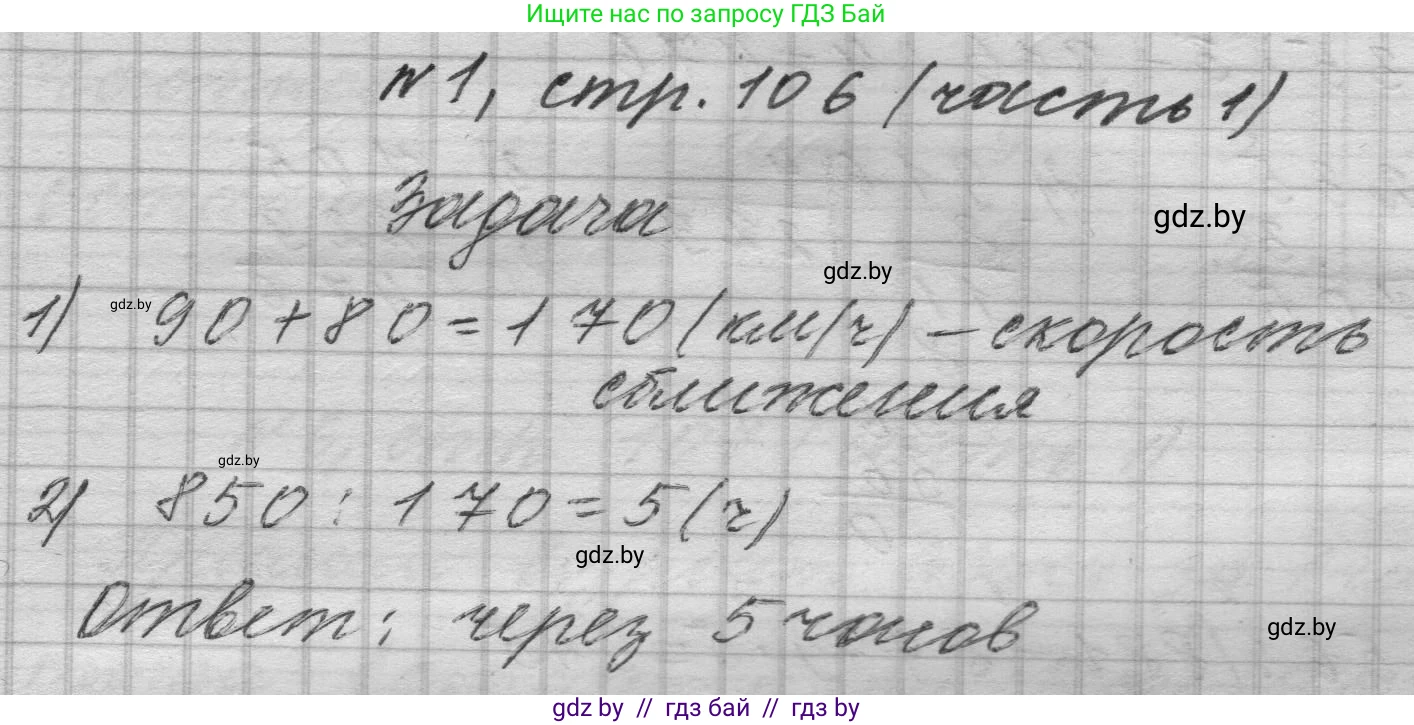 Ищите нас по запросу ГДЗ Бай
№1, стр. 106 (часть 1)
Задача
gdz.by
gdz.by
1) gdz.by 90+80=170(км/ч) – скорость
сближения
gdz.by
2) 850:170=5(ч)
gdz.by
Ответ: через 5 часов
gdz.by
gdz by // гдз бай // гдз by